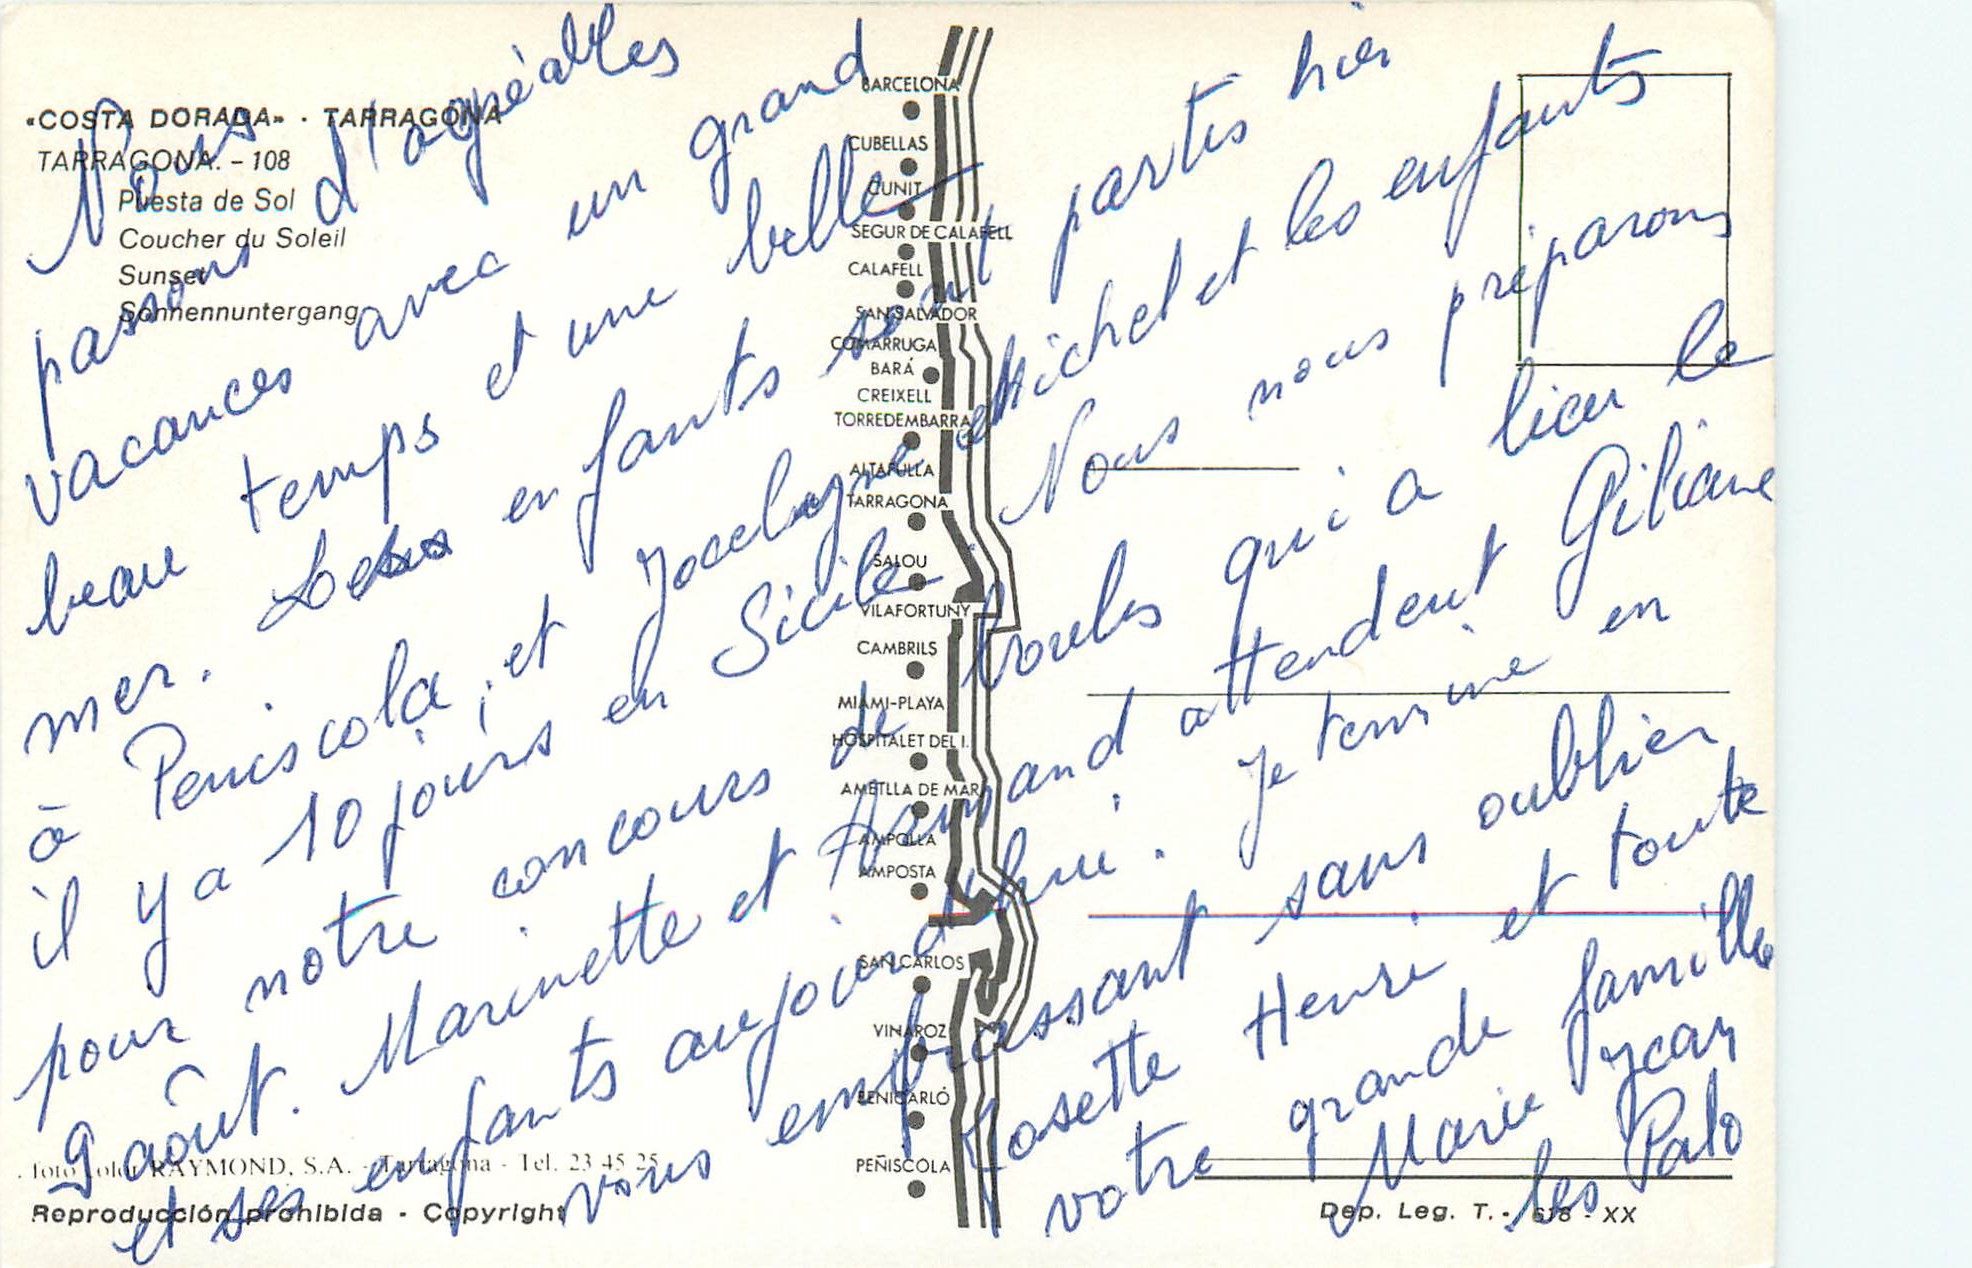 «COSTA DORADA» · TARRAGONA
TARRAGONA. - 108
Puesta de Sol
Coucher du Soleil
Sunset
Sonnennuntergang
Nous
passons d'agréables
vacances avec un grand
beau temps et une belle
mer. Les enfants sont partis hier
à Peniscola, et Jocelyne et Michel et les enfants
il y a 10 jours en Sicile. Nous nous préparons
pour notre concours de boules qui a lieu le
9 août. Marinette et Armand attendent Giliane
et ses enfants aujourd'hui. Je termine en
vous embrassant sans oublier
Josette Henri et toute
votre grande famille
Marie Jean
les Palo
BARCELONA
CUBELLAS
CUNIT
SEGUR DE CALAFELL
CALAFELL
SAN SALVADOR
COMARRUGA
BARÁ
CREIXELL
TORREDEMBARRA
ALTAFULLA
TARRAGONA
SALOU
VILAFORTUNY
CAMBRILS
MIAMI-PLAYA
HOSPITALET DEL I.
AMETLLA DE MAR
AMPOLLA
AMPOSTA
SAN CARLOS
VINAROZ
BENICARLÓ
PEÑISCOLA
foto color RAYMOND, S.A. - Tarragona - Tel. 23 45 25
Reproducción prohibida - Copyright
Dep. Leg. T. - 618 - XX